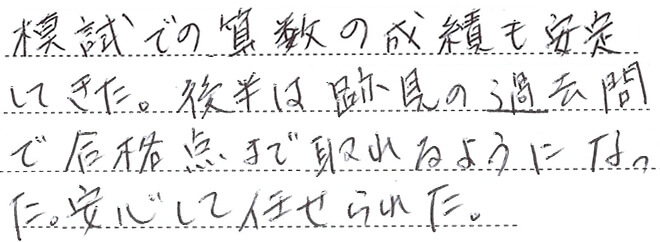 模試での算数の成績も安定
してきた。後半は跡見の過去問
で合格点まで取れるようになっ
た。安心して任せられた。